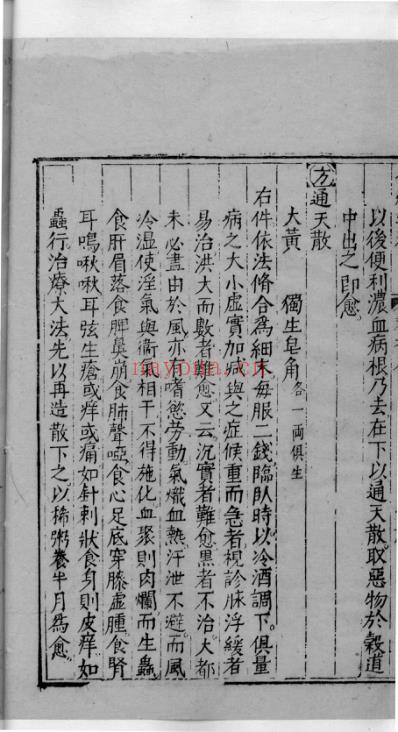 以後便利濃血病根乃去在下以通天散取惡物於穀道
中出之即愈
方通天散
大黃 獨生皂角各一兩俱生
右件依法脩合爲細末每服二錢臨臥時以冷酒調下俱量
病之大小虛實加減與之症候重而急者視診脉浮緩者
易治洪大而數者難愈又云沉實者難愈黑者不治大都
未必盡由於風亦有嗜慾勞動氣熾血熱汗泄不避而風
冷溫使淫氣與衞氣相干不得施化血聚則肉爛而生蟲
食肝眉落食脾鼻崩食肺聲啞食心足底穿膝虛腫食腎
耳鳴啾啾耳弦生瘡或痒或痛如針刺狀食身則皮痒如
蟲行治療大法先以再造散下之以稀粥養半月爲愈
nayona.cn